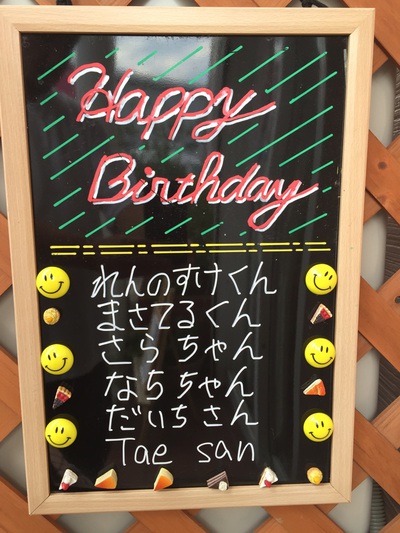 Happy
Birthday
れんのすけくん
まさてるくん
さらちゃん
なちちゃん
だいちさん
Tae san